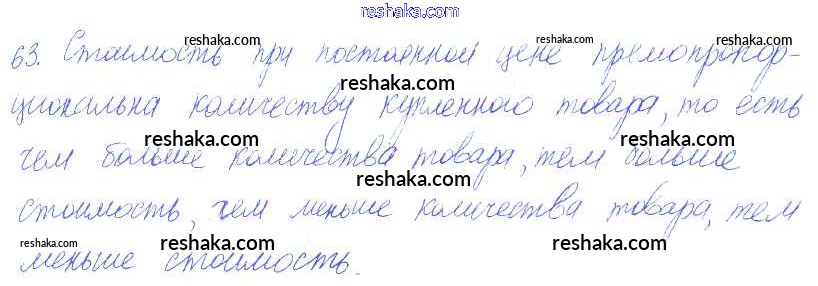 reshaka.com
63. Стоимость при постоянной цене прямопропор-
reshaka.com reshaka.com reshaka.com
reshaka.com reshaka.com
циональна количеству купленного товара, то есть
reshaka.com reshaka.com
чем больше количества товара, тем больше
reshaka.com
стоимость, чем меньше количества товара, тем
reshaka.com reshaka.com reshaka.com
меньше стоимость.